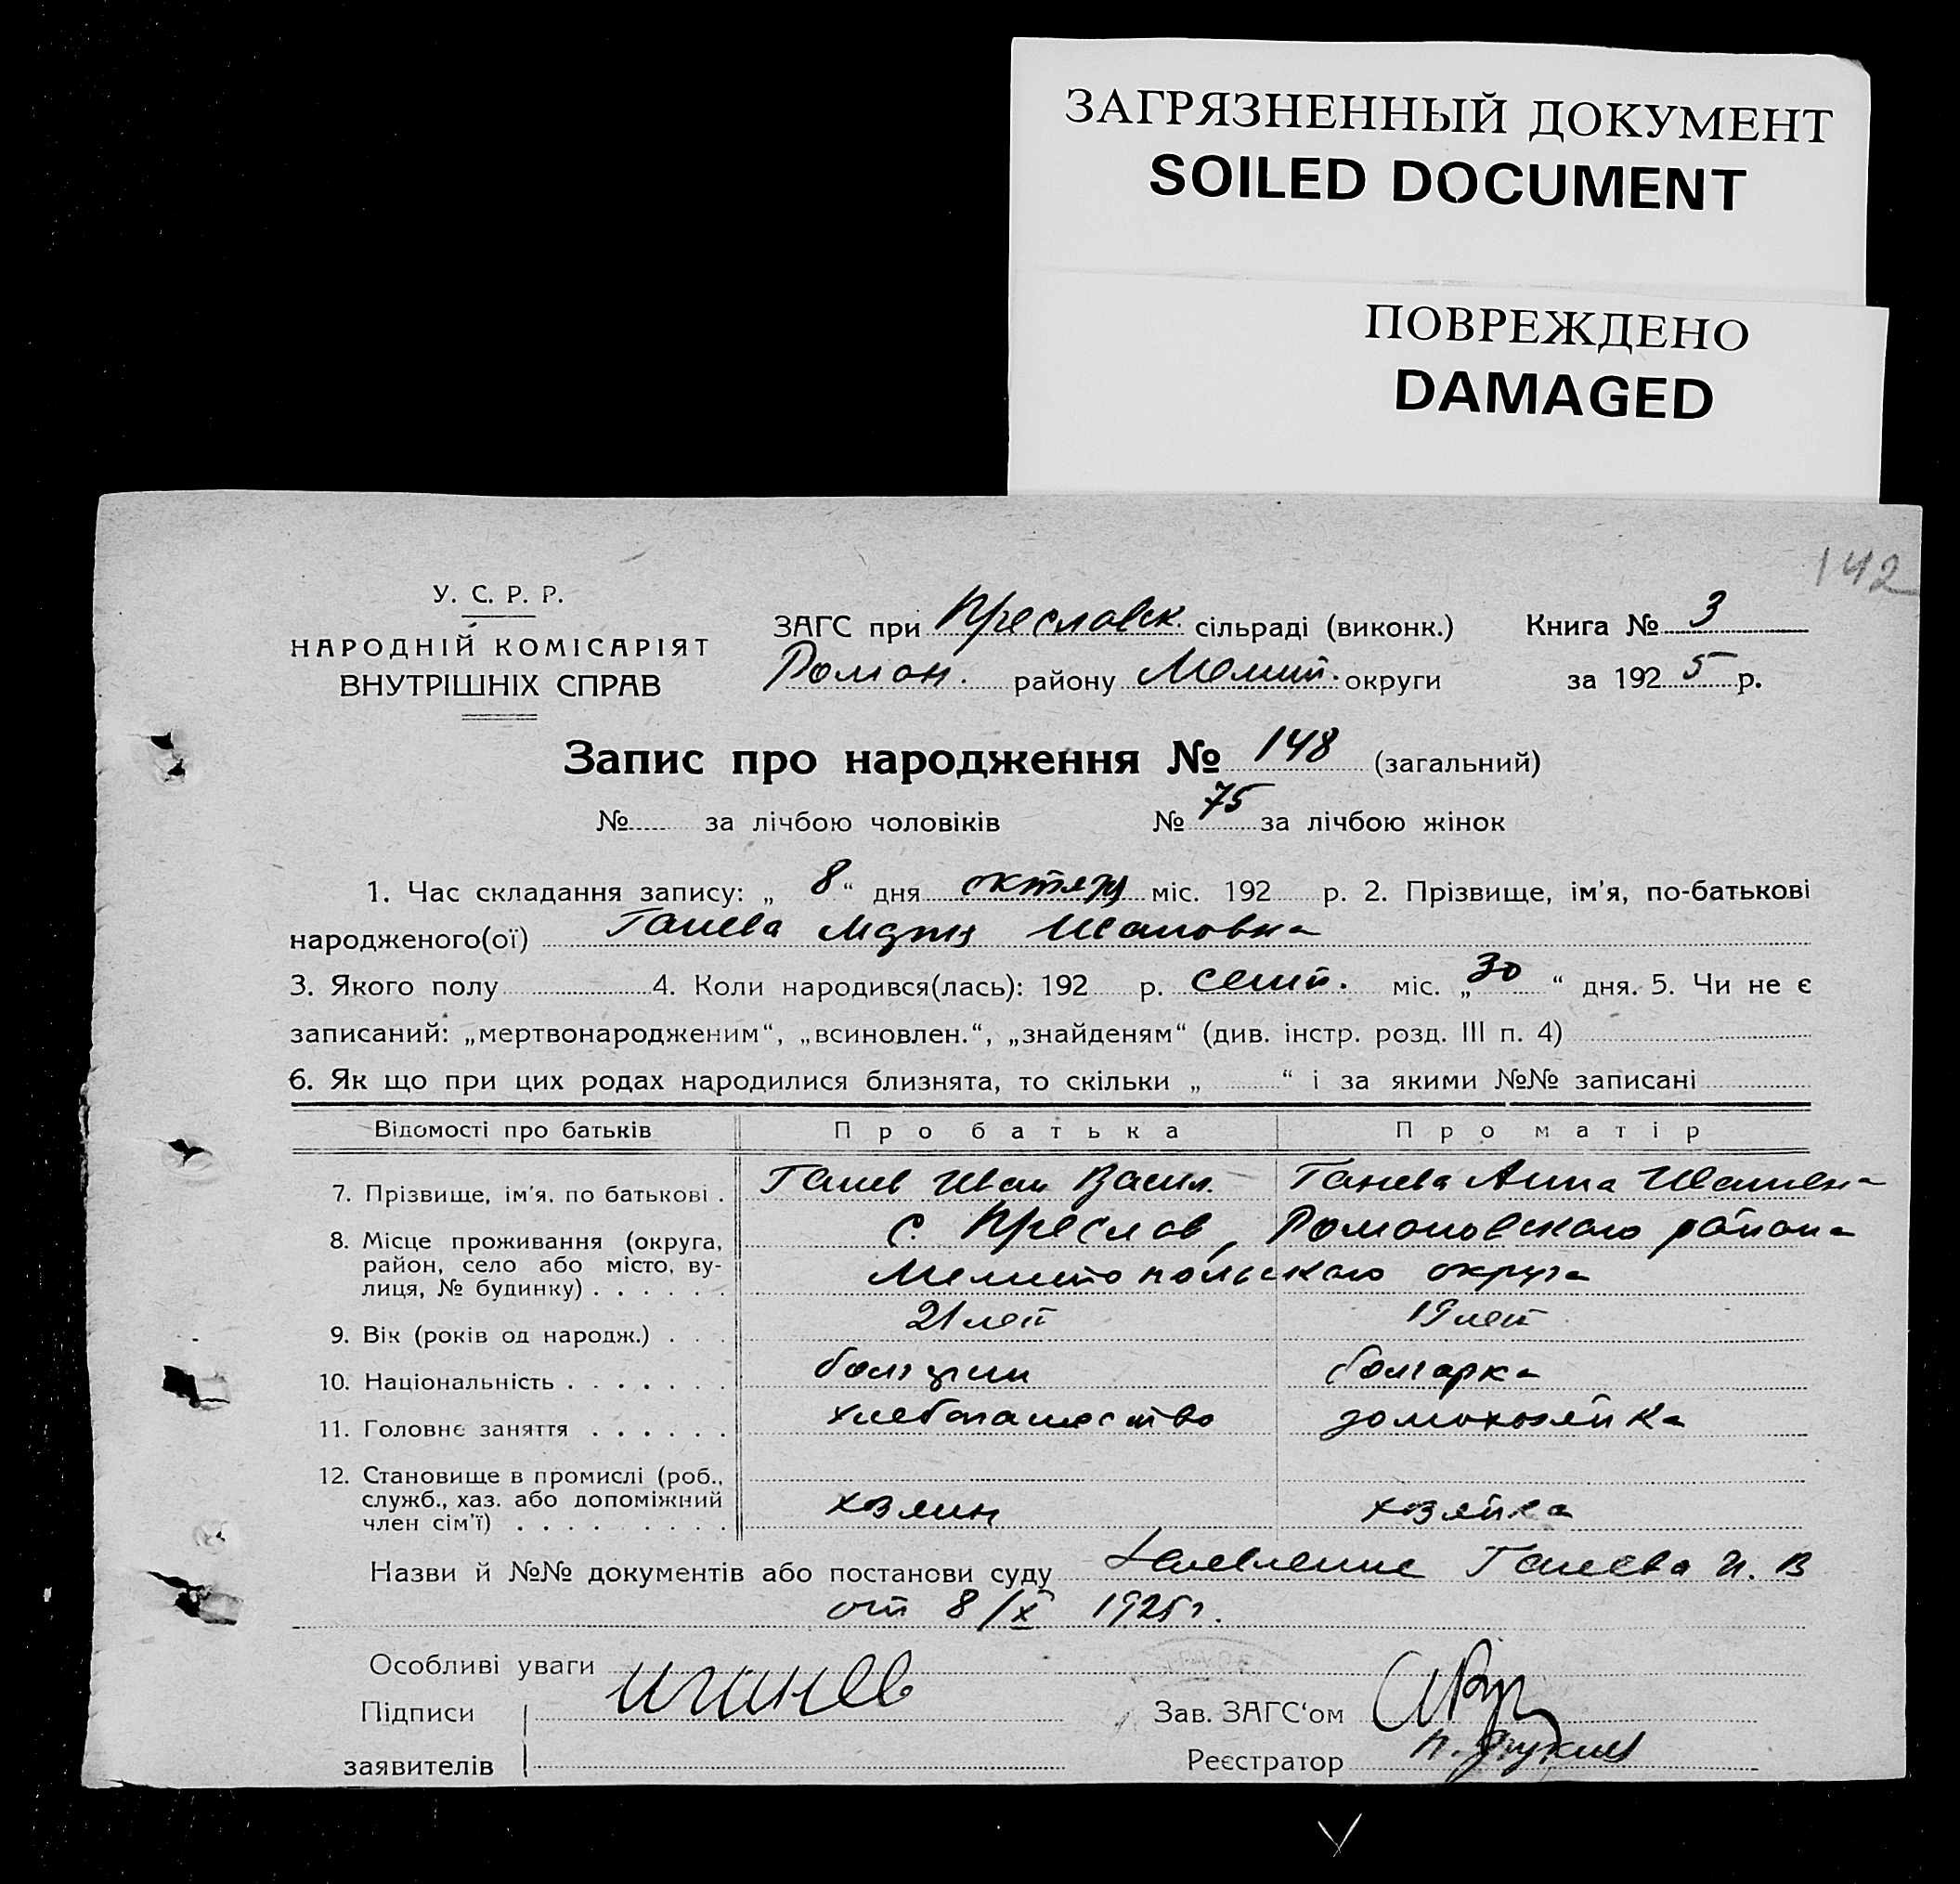 ЗАГРЯЗНЕННЫЙ ДОКУМЕНТ
SOILED DOCUMENT
ПОВРЕЖДЕНО
DAMAGED
142
У. С. Р. Р.
НАРОДНІЙ КОМІСАРІЯТ
ВНУТРІШНІХ СПРАВ
ЗАГС при Преславск. сільраді (виконк.) Книга № 3
Роман. району Мелит. округи за 1925 р.
Запис про народження № 148 (загальний)
№ за лічбою чоловіків № 75 за лічбою жінок
1. Час складання запису: „ 8 “ дня октяр міс. 192 р. 2. Прізвище, ім'я, по-батькові
народженого(ої) Ганева Мария Ивановна
3. Якого полу 4. Коли народився(лась): 192 р. сент. міс. „ 30 “ дня. 5. Чи не є
записаний: „мертвонародженим“, „всиновлен.“, „знайденям“ (див. інстр. розд. III п. 4)
6. Як що при цих родах народилися близнята, то скільки „ “ і за якими №№ записані
Відомості про батьків Про батька Про матір
7. Прізвище, ім'я, по батькові . Ганев Иван Васил. Ганева Анна Ивановна
8. Місце проживання (округа, с. Преслав, Романовского района
район, село або місто, ву-
лиця, № будинку) . . . . . . Мелитопольского округа
9. Вік (років од народж.) . . . 21 лет 19 лет
10. Національність . . . . . . . болгарин болгарка
11. Головнє заняття . . . . . . хлебопашество домохозяйка
12. Становище в промислі (роб.,
служб., хаз. або допоміжний
член сім'ї) . . . . . . . . . хозяин хозяйка
Назви й №№ документів або постанови суду Заявление Ганева И. В
от 8/X 1925 г.
Особливі уваги
Підписи
заявителів
И Ганев
Зав. ЗАГС‘ом
Реєстратор